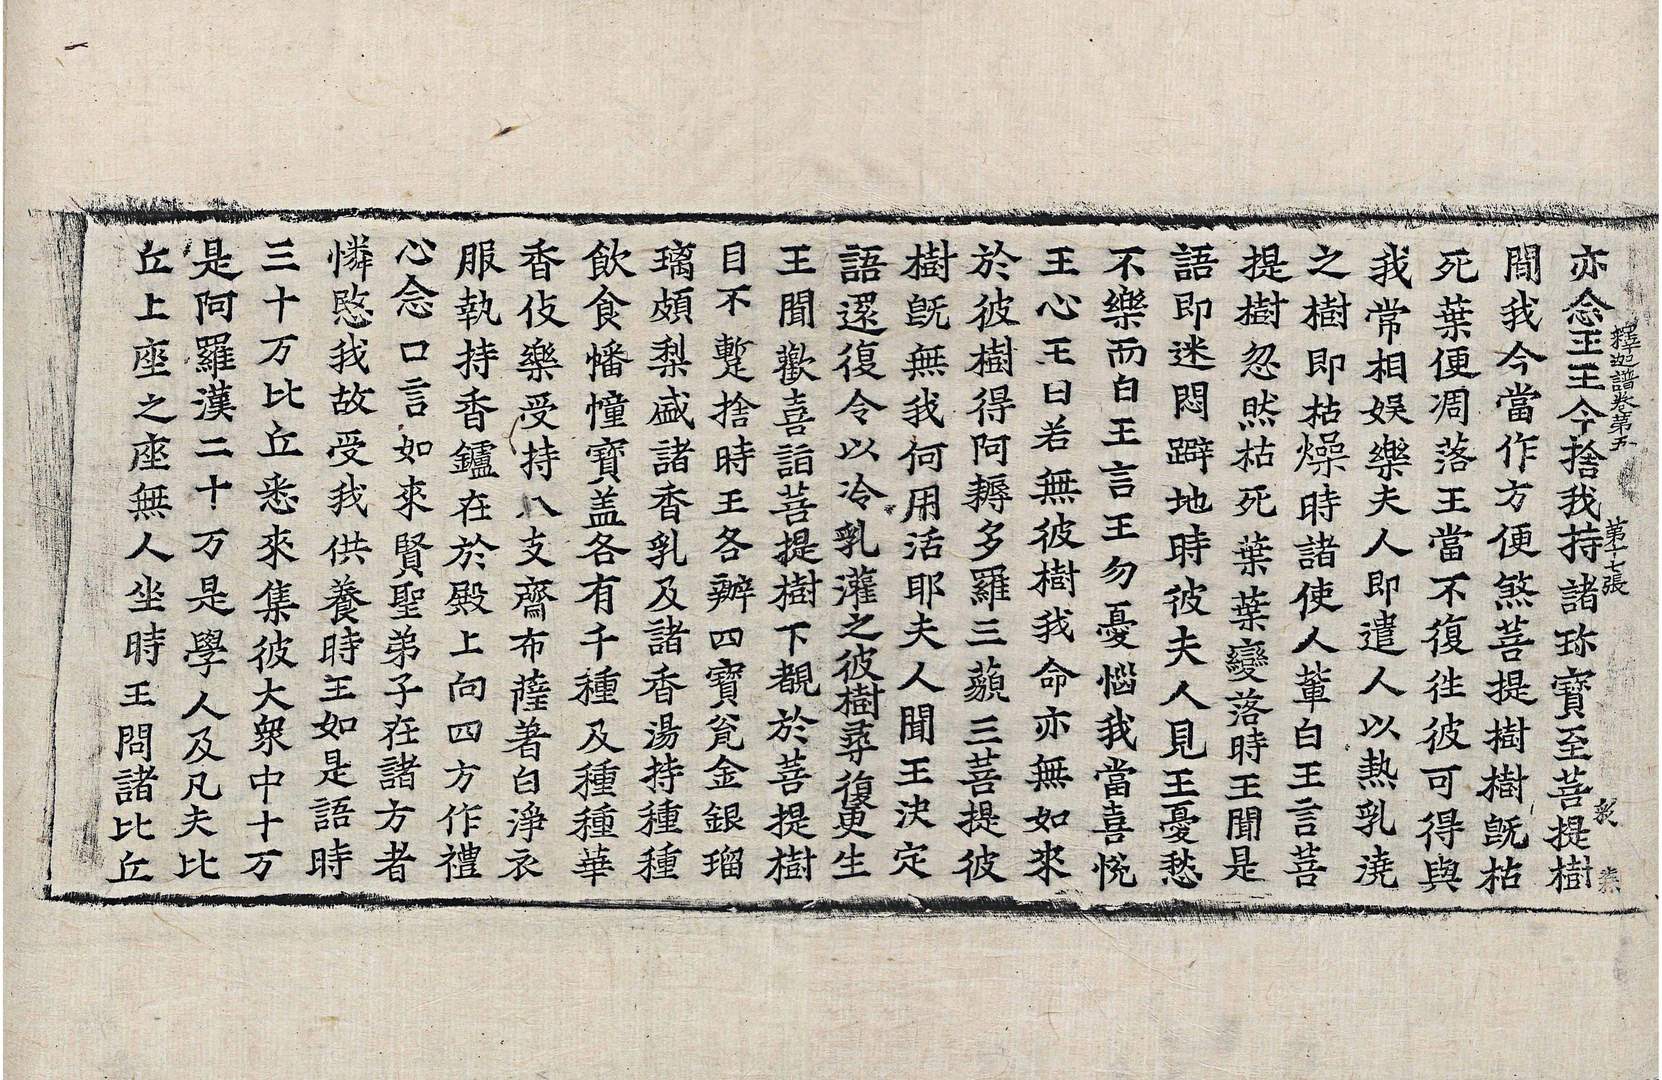 釋迦譜卷第五 第十七張
亦念王王今捨我持諸珎寶至菩提樹
間我今當作方便煞菩提樹樹旣枯
死葉便凋落王當不復往彼可得與
我常相娛樂夫人即遣人以熱乳澆
之樹即枯燥時諸使人輩白王言菩
提樹忽然枯死葉葉變落時王聞是
語即迷悶躃地時彼夫人見王憂愁
不樂而白王言王勿憂惱我當喜悅
王心王曰若無彼樹我命亦無如來
於彼樹得阿耨多羅三藐三菩提彼
樹旣無我何用活耶夫人聞王決定
語還復令以冷乳灌之彼樹尋復更生
王聞歡喜詣菩提樹下覩於菩提樹
目不蹔捨時王各辦四寶瓮金銀瑠
璃頗梨盛諸香乳及諸香湯持種種
飲食幡幢寶盖各有千種及種種華
香伎樂受持八支齋布薩著白淨衣
服執持香鑪在於殿上向四方作禮
心念口言如來賢聖弟子在諸方者
憐愍我故受我供養時王如是語時
三十万比丘悉來集彼大衆中十万
是阿羅漢二十万是學人及凡夫比
丘上座之座無人坐時王問諸比丘